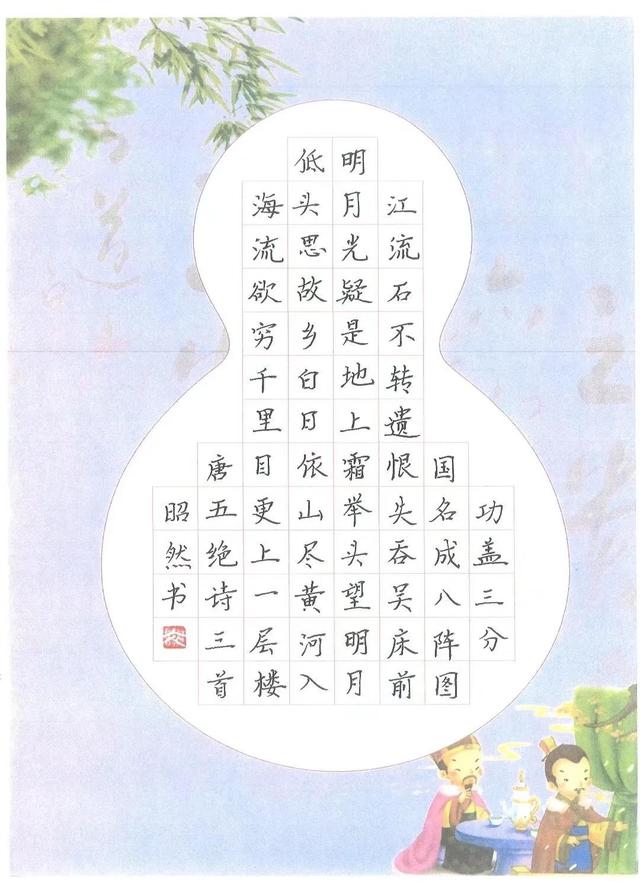 功盖三分
国名成八阵图
江流石不转遗恨失吞吴床前
明月光疑是地上霜举头望明月
低头思故乡白日依山尽黄河入
海流欲穷千里目更上一层楼
唐五绝诗三首
昭然书